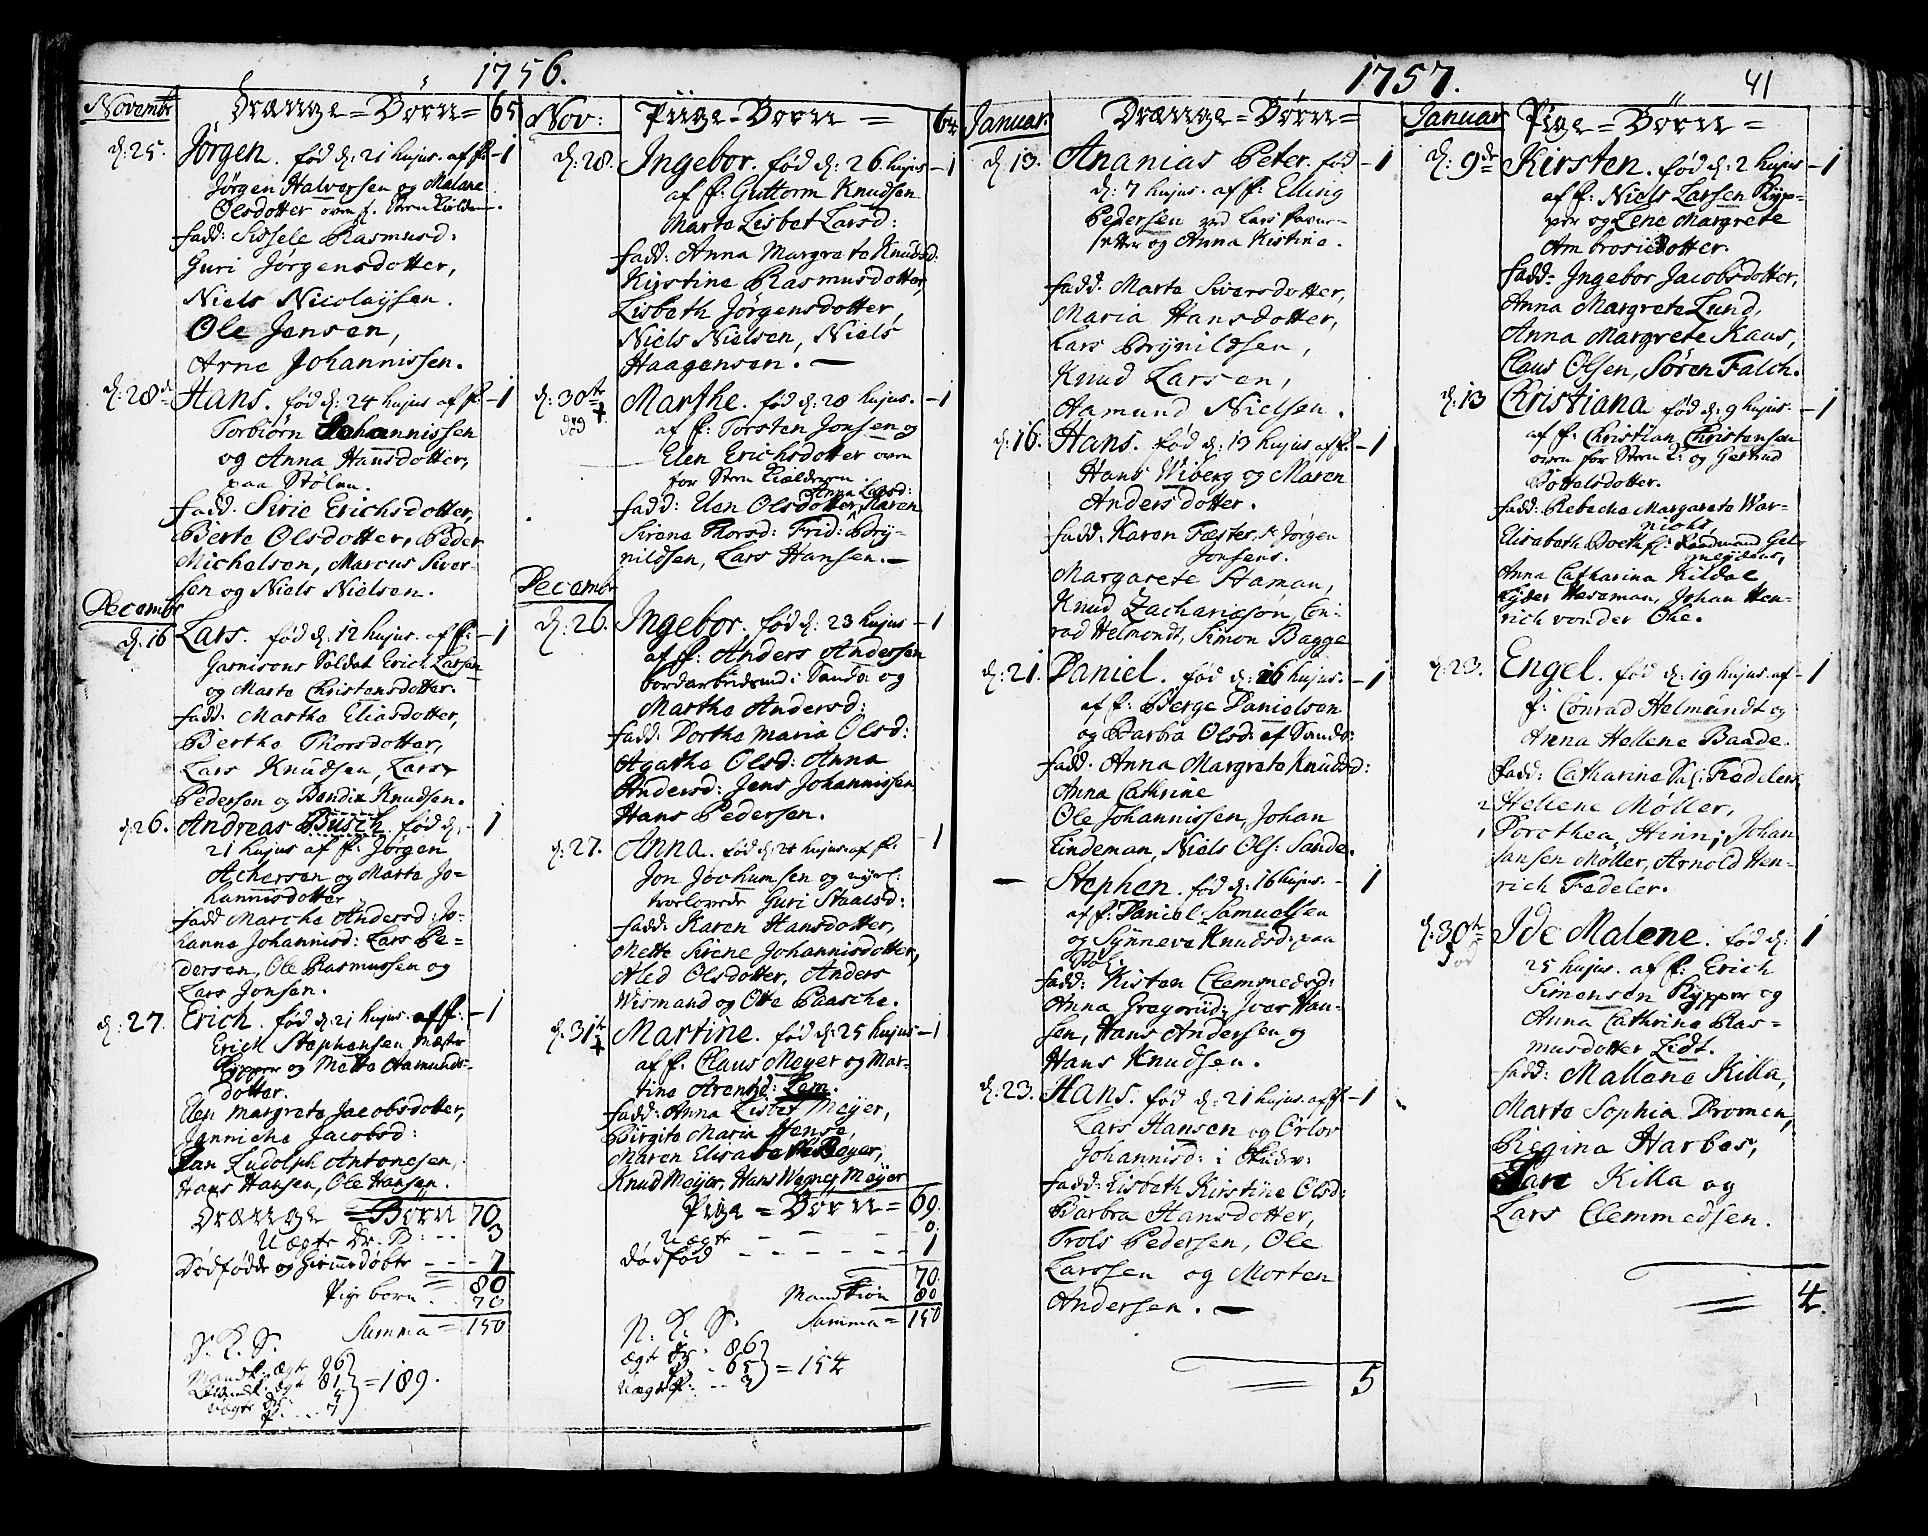 1756.
Novembr
Drænge = Børn = 65
d: 25. Jørgen. fød d: 21 hujus. af f: – 1
Jørgen Halversen og Malane
Olsdotter
fadd: Sissele Rasmusd:
Guri Jørgensdotter,
Niels Nicolaysen.
Ole Jensen,
Arne Johannissen.
d: 28 Hans. fød d: 24 hujus af f: – 1
Torbiørn Johannissen
og Anna Hansdotter,
paa Stølen.
fadd. Sirie Erichsdotter,
Berte Olsdotter, Peder
Michelsen, Marcus Siver-
sen og Niels Nielsen.
Decembr
d: 16 Lars. fød d: 12 hujus. af f: – 1
Garnisons Soldat Erich Larsen
og Marte Christensdotter.
fadd. Marthe Eliasdotter,
Berthe Thorsdotter,
Lars Knudsen, Lars
Pedersen og Bendix Knudsen.
d: 26. Andreas Busch. fød d: – 1
21 hujus af f: Jørgen
Achersen og Marte Jo-
hannisdotter
fadd Marche Andersd: Jo-
hanne Johannisd: Lars Pe-
dersen, Ole Rasmussen og
Lars Jonsen.
d: 27. Erich. fød d: 21 hujus. af f: – 1
Erich Stephensen Mæster
Rypper og Mette Aamunds-
dotter.
Elen Margrete Jacobsdotter,
Jenniche Jacobsd:
Jan Ludolph Antonesen,
Hans Hansen, Ole Hansen.
Drænge = Børn 70
Uægte Dr. B: .. 3
Dødfødde og hiemedøbte - - - 7
80
Pige børn . . 70
Summa = 150
Mandk: ægte 96
81
= 189.
Nov:
Piige = Børn = 64
d: 28. Ingebor. fød d: 26 hujus – 1
af f: Guttorm Knudsen
Marte Lisbet Larsd:
fadd: Anna Margrete Knudsd:
Kirstine Rasmusdotter,
Lisbeth Jørgensdotter,
Niels Nielsen, Niels
Haagensen. —
d: 30te Marthe. fød d: 28 hujus. – 1
død +
af f: Torsten Jonsen og
Elen Erichsdotter oven
for Steen Kielderen.
Anne Larsd:
fadd: Elen Olsdotter, Karen
Sirene Thorsd: Frid: Bry-
nildsen, Lars Hansen. —
Decembr
d: 26. Ingebor. fød d: 23 hujus – 1
af f: Anders Andersen
bordarbeidsmd i Sandv: og
Marthe Andersd:
fadd: Dorthe Maria Olsd:
Agathe Olsd: Anna
Andersd: Jens Johannissen
Hans Pedersen.
d: 27. Anna. fød d: 24 hujus. af f: – 1
Jon Jochumsen og
trolovede Guri Staalsd:
fadd: Karen Hansdotter,
Mette Sirene Johannisdotter,
Aled Olsdotter, Anders
Wismand og Otte Paasche.
d: 31te Martine. fød d: 25 hujus – 1
+
af f: Claus Meyer og Mar-
tine Arentsd: Lem.
fadd: Anna Lisbet Meyer,
Birgite Maria Jense,
Maren Elisabeth Beyer,
Knud Meyer, Hans Werner Meyer
Pige = Børn = 69.
Uægte – – – – 0.
Dødfød – – – – – 1
70.
Mandkiøn 80
Summa = 150
N. K. S.
ægte Dr. 86
P. .. 65 = 154
Uægte P. .. 3
1757.
41
Januar.
Drænge = Børn =
d: 13. Ananias Peter. fød – 1
d: 7 hujus. af f: Elling
Pedersen ved Lars
og Anna Kistine.
fadd: Marte Siversdotter,
Maria Hansdotter,
Lars Brynildsen,
Knud Larsen,
Aamund Nielsen.
d: 16. Hans. fød d: 13 hujus af f. – 1
Hans Wiberg og Maren
Andersdotter.
fadd: Karen Fæster, Sr Jørgen
Jonsens.
Margarete Staman,
Knud Zachariasøn, Con-
rad Helmondt, Simon Bagge
d: 21. Daniel. fød d: 16 hujus. – 1
af f: Berge Danielsen
og Barbra Olsd: af Sandv:
fadd: Anna Margrete Knudsd:
Anna Cathrine
Ole Johannissen, Johan
Lindeman, Niels Ols: Sande.
— Stephen. fød d: 16 hujus. – 1
af f: Daniel Samuelsen
og Synneve Knudsd: paa
Støl:
fadd: Kisten Clemmedsd:
Anna Gregorid: Iver Han-
sen, Hans Andersen og
Hans Knudsen.
d: 23. Hans. fød d: 21 hujus. af f. – 1
Lars Hansen og Orlov
Johannisd: i Skudv:
fadd: Lisbeth Kirstine Olsd:
Barbra Hansdotter,
Trols Pedersen, Ole
Larssen og Morten
Andersen. —
5
Januar
Pige = Børn =
d: 9de Kirsten. fød d: 2 hujus – 1
af f: Niels Larsen Ryp-
per og Lene Margrete
Ambrosiedotter.
fadd: Ingebor Jacobsdotter,
Anna Margrete Lund,
Anna Margrete Kaas,
Claus Olsen, Søren Falch.
d: 13 Christiana fød d: 9 hujus. – 1
af f: Christian Christensen
oven for Steen K: og Gertrud
Bottelsdotter.
fadd: Rebeche Margarete War-
nichs,
Elisabeth Poeth sl: Raadmand Gel-
meydens,
Anna Catharina Kildal
Hesseman, Johan Hen-
rich vonder Ohe.
d: 23. Engel. fød d: 19 hujus. af – 1
f: Conrad Helmundt og
Anna Hellene Baade.
fadd: Catharine Sal: Fedelers,
2 Hellene Møller,
1 Dorothea Hinn, Johan
Jansen Møller, Arnold Hen-
rich Fedeler.
d: 30te Ide Malene. fød d: 1
død
25 hujus. af f: Erich
Simensen Rypper og
Anna Cathrine Ras-
musdotter Lidt.
fadd: Mallene Killa,
Marte Sophia Dromen,
Regina Harbos,
Killa og
Lars Clemmedsen.
4.